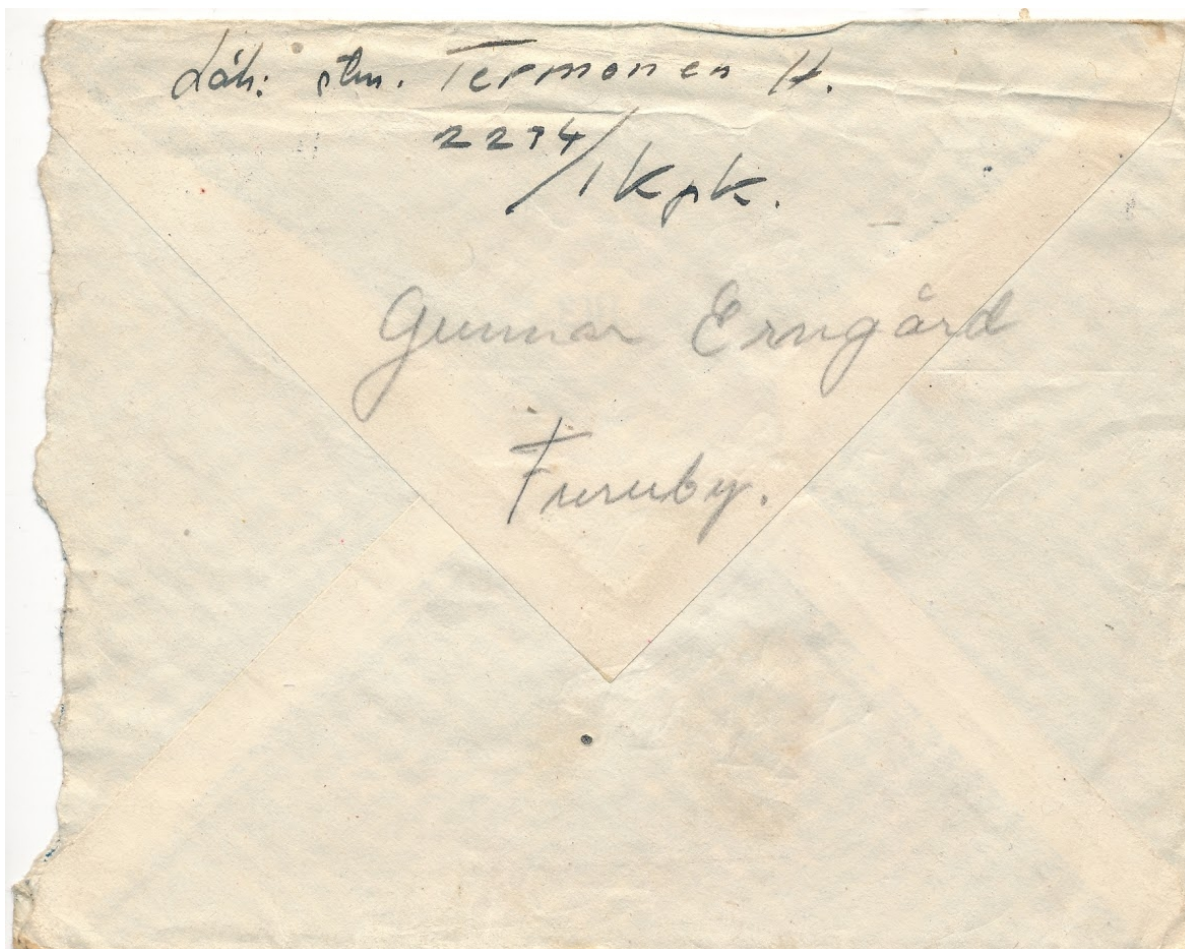 Läh: stm. Termonen H.
2294/1 Kpk.
Gunnar Erngård
Furuby.